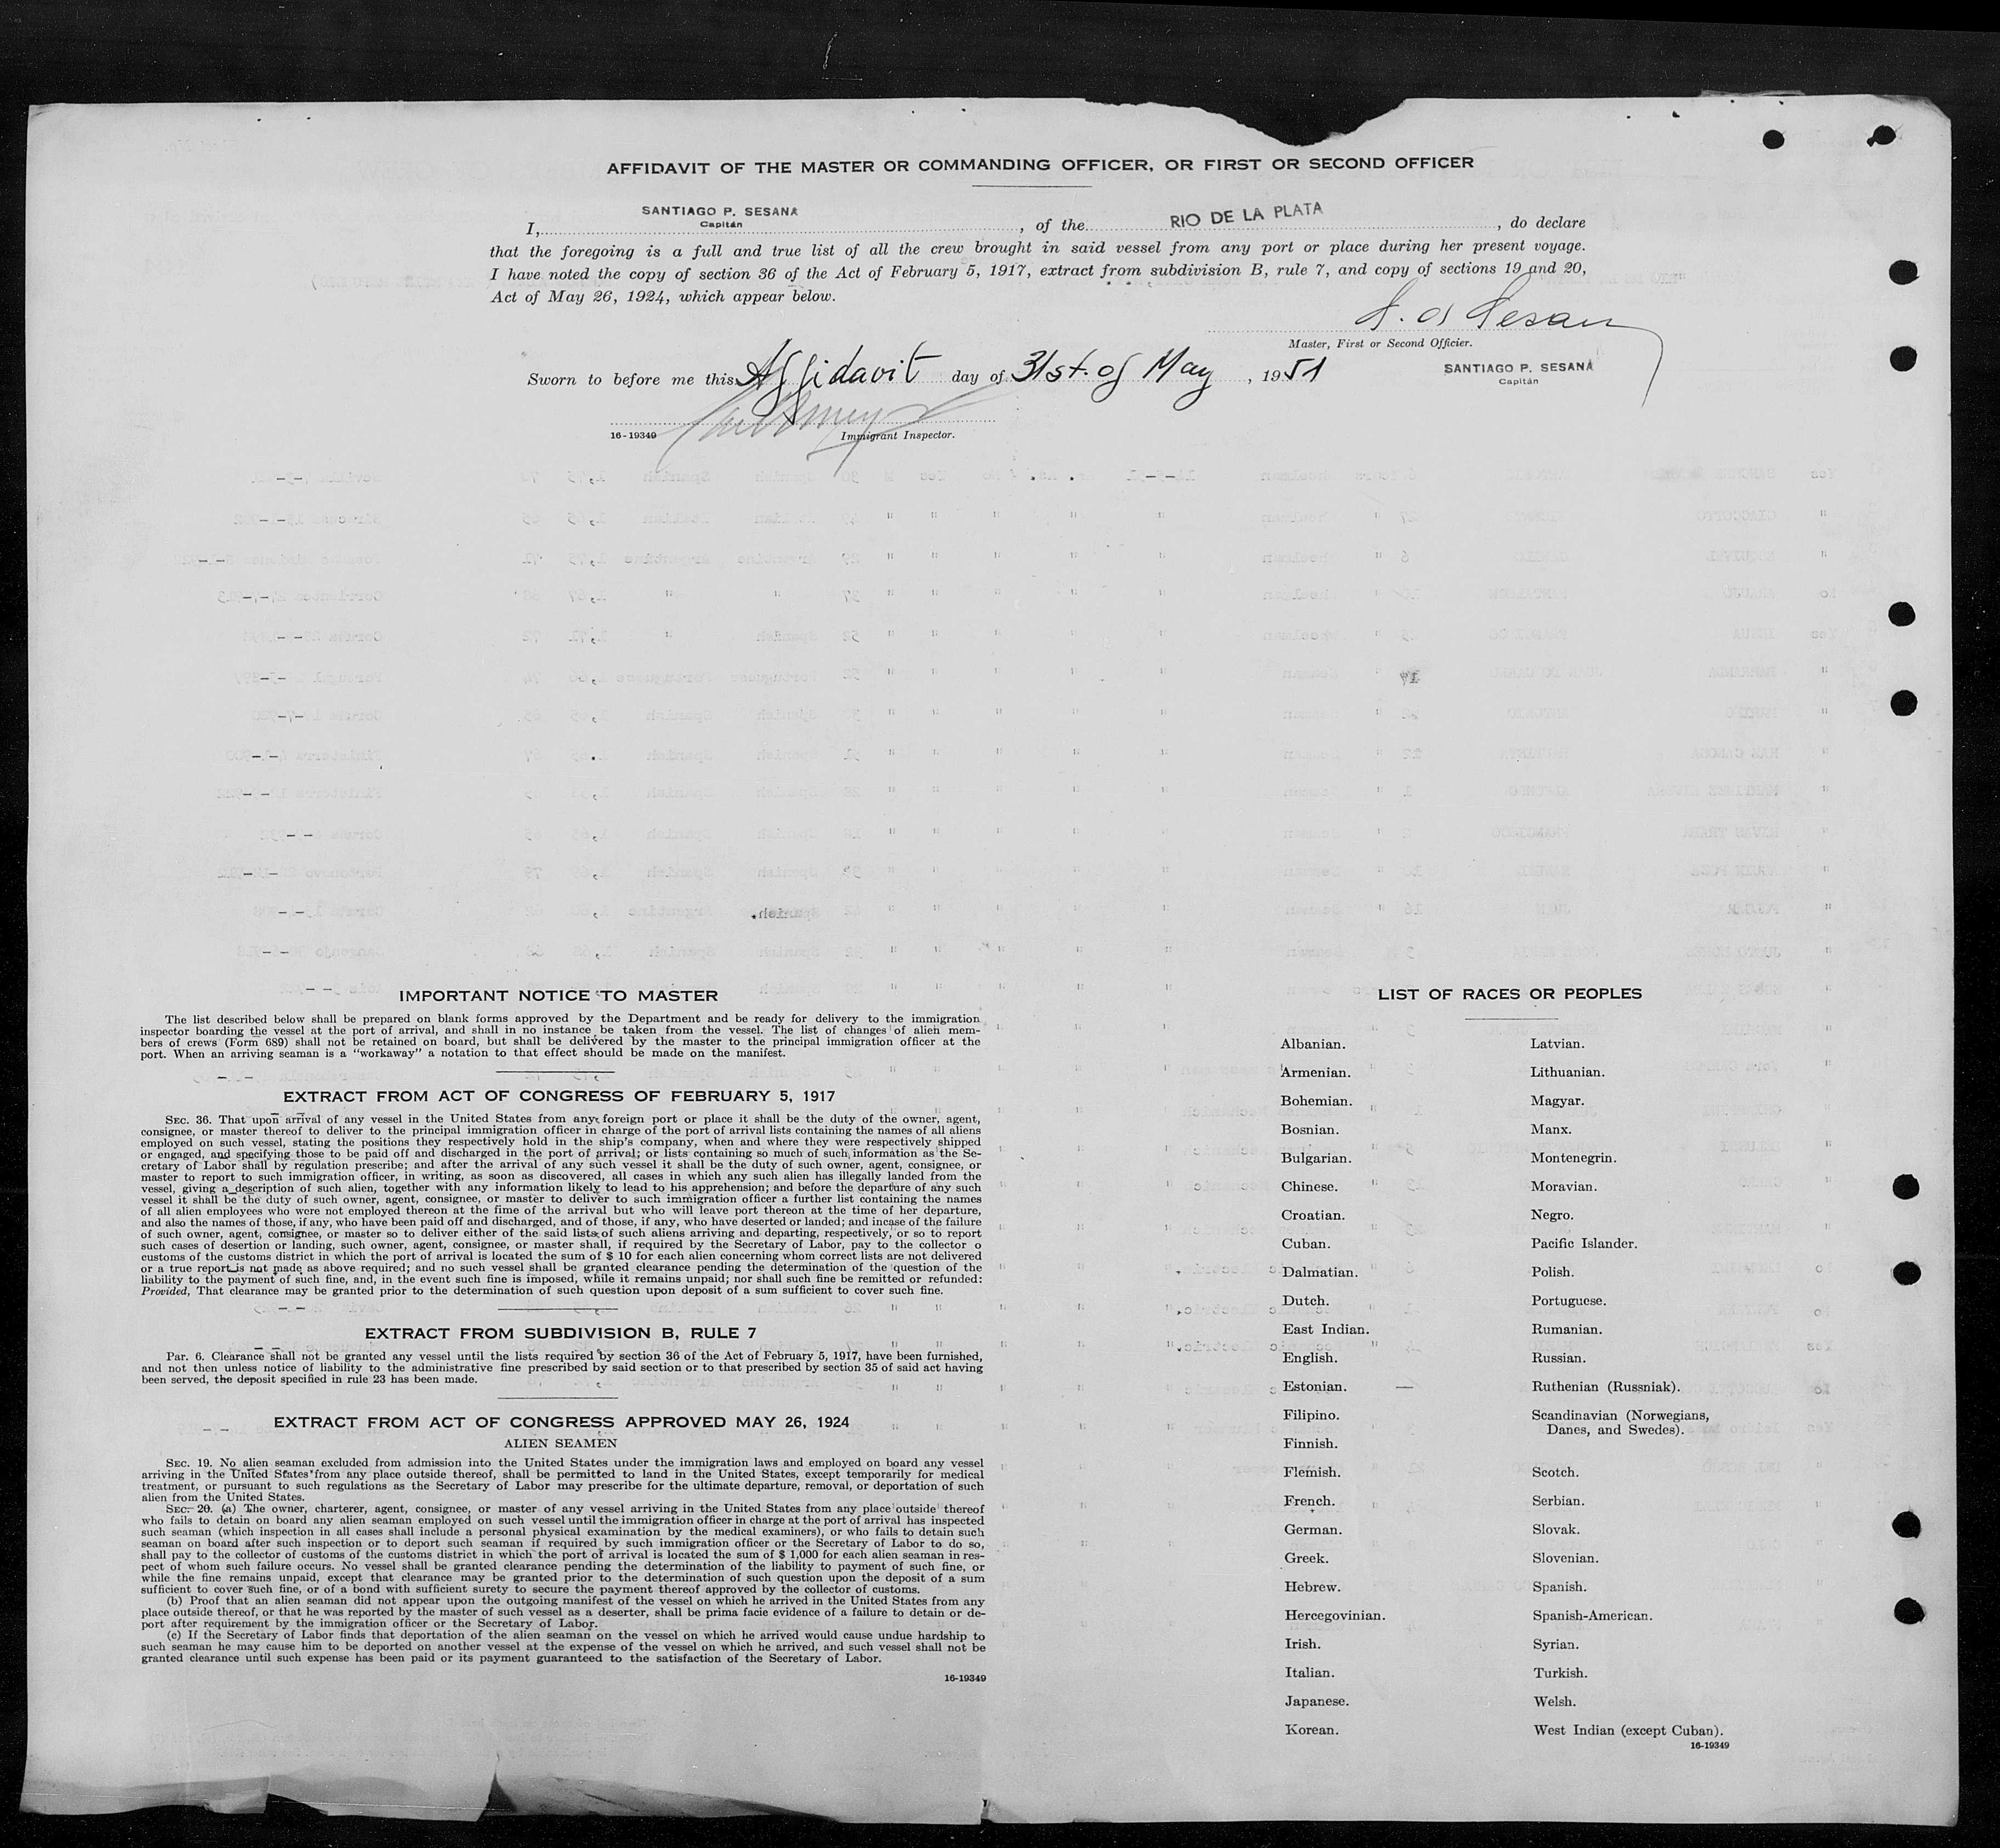 AFFIDAVIT OF THE MASTER OR COMMANDING OFFICER, OR FIRST OR SECOND OFFICER
SANTIAGO P. SESANA
Capitán
RIO DE LA PLATA
I, , of the , do declare
that the foregoing is a full and true list of all the crew brought in said vessel from any port or place during her present voyage.
I have noted the copy of section 36 of the Act of February 5, 1917, extract from subdivision B, rule 7, and copy of sections 19 and 20,
Act of May 26, 1924, which appear below.
Master, First or Second Officier.
Sworn to before me this Affidavit day of 31st. of May , 1951
SANTIAGO P. SESANA
Capitán
16-19349 Immigrant Inspector.
IMPORTANT NOTICE TO MASTER
The list described below shall be prepared on blank forms approved by the Department and be ready for delivery to the immigration
inspector boarding the vessel at the port of arrival, and shall in no instance be taken from the vessel. The list of changes of alien mem-
bers of crews (Form 689) shall not be retained on board, but shall be delivered by the master to the principal immigration officer at the
port. When an arriving seaman is a "workaway" a notation to that effect should be made on the manifest.
EXTRACT FROM ACT OF CONGRESS OF FEBRUARY 5, 1917
SEC. 36. That upon arrival of any vessel in the United States from any foreign port or place it shall be the duty of the owner, agent,
consignee, or master thereof to deliver to the principal immigration officer in charge of the port of arrival lists containing the names of all aliens
employed on such vessel, stating the positions they respectively hold in the ship's company, when and where they were respectively shipped
or engaged, and specifying those to be paid off and discharged in the port of arrival; or lists containing so much of such information as the Se-
cretary of Labor shall by regulation prescribe; and after the arrival of any such vessel it shall be the duty of such owner, agent, consignee, or
master to report to such immigration officer, in writing, as soon as discovered, all cases in which any such alien has illegally landed from the
vessel, giving a description of such alien, together with any information likely to lead to his apprehension; and before the departure of any such
vessel it shall be the duty of such owner, agent, consignee, or master to deliver to such immigration officer a further list containing the names
of all alien employees who were not employed thereon at the fime of the arrival but who will leave port thereon at the time of her departure,
and also the names of those, if any, who have been paid off and discharged, and of those, if any, who have deserted or landed; and incase of the failure
of such owner, agent, consignee, or master so to deliver either of the said lists of such aliens arriving and departing, respectively, or so to report
such cases of desertion or landing, such owner, agent, consignee, or master shall, if required by the Secretary of Labor, pay to the collector o
customs of the customs district in which the port of arrival is located the sum of $ 10 for each alien concerning whom correct lists are not delivered
or a true report is not made as above required; and no such vessel shall be granted clearance pending the determination of the question of the
liability to the payment of such fine, and, in the event such fine is imposed, while it remains unpaid; nor shall such fine be remitted or refunded:
Provided, That clearance may be granted prior to the determination of such question upon deposit of a sum sufficient to cover such fine.
EXTRACT FROM SUBDIVISION B, RULE 7
Par. 6. Clearance shall not be granted any vessel until the lists required by section 36 of the Act of February 5, 1917, have been furnished,
and not then unless notice of liability to the administrative fine prescribed by said section or to that prescribed by section 35 of said act having
been served, the deposit specified in rule 23 has been made.
EXTRACT FROM ACT OF CONGRESS APPROVED MAY 26, 1924
ALIEN SEAMEN
SEC. 19. No alien seaman excluded from admission into the United States under the immigration laws and employed on board any vessel
arriving in the United States from any place outside thereof, shall be permitted to land in the United States, except temporarily for medical
treatment, or pursuant to such regulations as the Secretary of Labor may prescribe for the ultimate departure, removal, or deportation of such
alien from the United States.
SEC. 20. (a) The owner, charterer, agent, consignee, or master of any vessel arriving in the United States from any place outside thereof
who fails to detain on board any alien seaman employed on such vessel until the immigration officer in charge at the port of arrival has inspected
such seaman (which inspection in all cases shall include a personal physical examination by the medical examiners), or who fails to detain such
seaman on board after such inspection or to deport such seaman if required by such immigration officer or the Secretary of Labor to do so,
shall pay to the collector of customs of the customs district in which the port of arrival is located the sum of $ 1,000 for each alien seaman in res-
pect of whom such failure occurs. No vessel shall be granted clearance pending the determination of the liability to payment of such fine, or
while the fine remains unpaid, except that clearance may be granted prior to the determination of such question upon the deposit of a sum
sufficient to cover such fine, or of a bond with sufficient surety to secure the payment thereof approved by the collector of customs.
(b) Proof that an alien seaman did not appear upon the outgoing manifest of the vessel on which he arrived in the United States from any
place outside thereof, or that he was reported by the master of such vessel as a deserter, shall be prima facie evidence of a failure to detain or de-
port after requirement by the immigration officer or the Secretary of Labor.
(c) If the Secretary of Labor finds that deportation of the alien seaman on the vessel on which he arrived would cause undue hardship to
such seaman he may cause him to be deported on another vessel at the expense of the vessel on which he arrived, and such vessel shall not be
granted clearance until such expense has been paid or its payment guaranteed to the satisfaction of the Secretary of Labor.
16-19349
LIST OF RACES OR PEOPLES
Albanian.
Armenian.
Bohemian.
Bosnian.
Bulgarian.
Chinese.
Croatian.
Cuban.
Dalmatian.
Dutch.
East Indian.
English.
Estonian.
Filipino.
Finnish.
Flemish.
French.
German.
Greek.
Hebrew.
Hercegovinian.
Irish.
Italian.
Japanese.
Korean.
Latvian.
Lithuanian.
Magyar.
Manx.
Montenegrin.
Moravian.
Negro.
Pacific Islander.
Polish.
Portuguese.
Rumanian.
Russian.
Ruthenian (Russniak).
Scandinavian (Norwegians,
Danes, and Swedes).
Scotch.
Serbian.
Slovak.
Slovenian.
Spanish.
Spanish-American.
Syrian.
Turkish.
Welsh.
West Indian (except Cuban).
16-19349